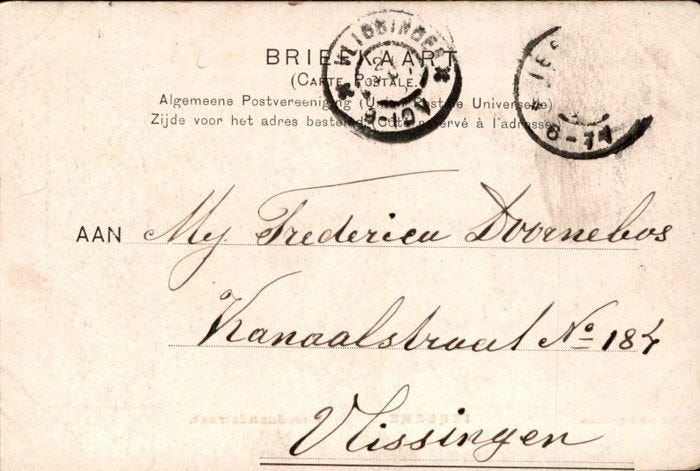 BRIEFKAART
(CARTE POSTALE.)
Algemeene Postvereeniging (Union Postale Universelle)
Zijde voor het adres bestemd. Côté réservé à l'adresse.
VLISSINGEN
8-10V
6-7N
AAN Mej Frederica Doornebos
Kanaalstraat No 184
Vlissingen